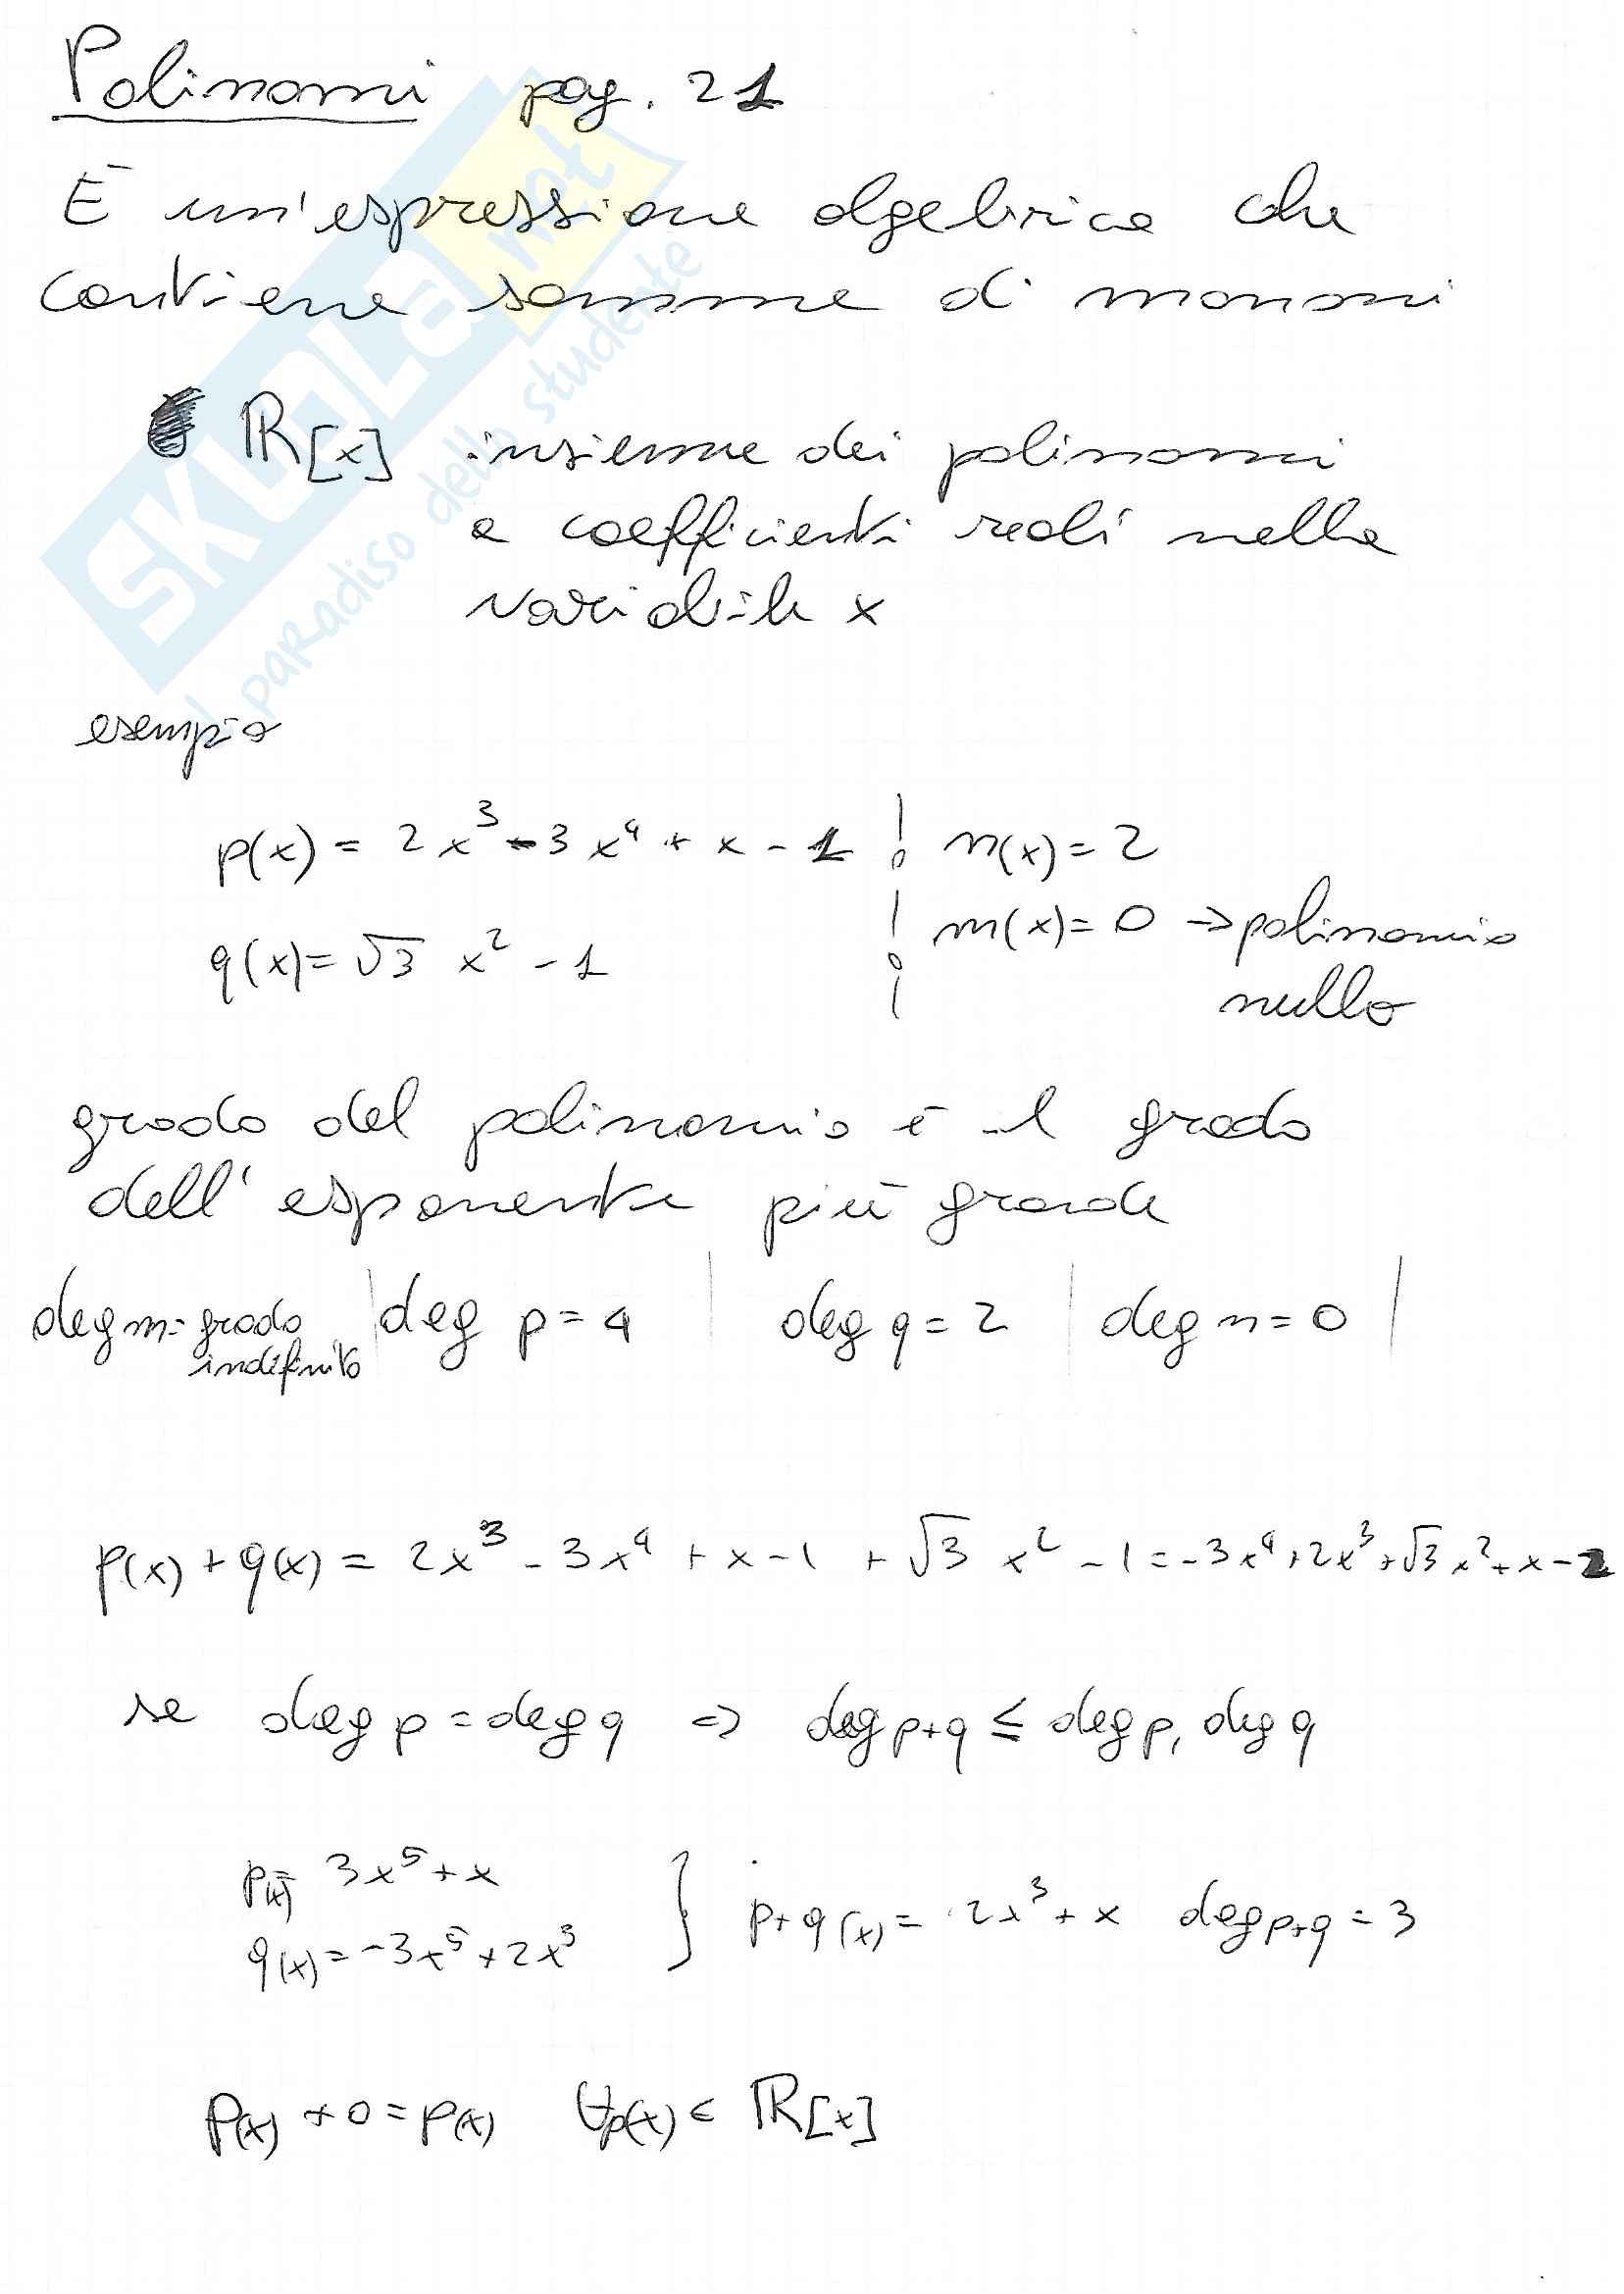 Polinomi pag. 21
È un'espressione algebrica che
contiene somme di monomi
ℝ[x] insieme dei polinomi
a coefficienti reali nella
variabile x
esempio
p(x) = 2x³ - 3x⁴ + x - 1 | n(x) = 2
q(x) = √3 x² - 1 | m(x) = 0 → polinomio
nullo
grado del polinomio è il grado
dell'esponente più grande
deg m = grado indefinito | deg p = 4 | deg q = 2 | deg n = 0 |
p(x) + q(x) = 2x³ - 3x⁴ + x - 1 + √3 x² - 1 = -3x⁴ + 2x³ + √3x² + x - 2
se deg p = deg q ⇒ deg p+q ≤ deg p, deg q
p(x) = 3x⁵ + x
q(x) = -3x⁵ + 2x³ } p+q(x) = 2x³ + x deg p+q = 3
p(x) + 0 = p(x) ∀p(x) ∈ ℝ[x]
SKUOLA.net
il paradiso dello studente